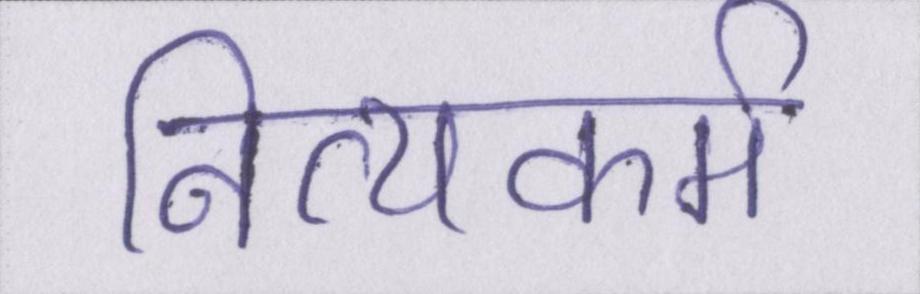 नित्यकर्म